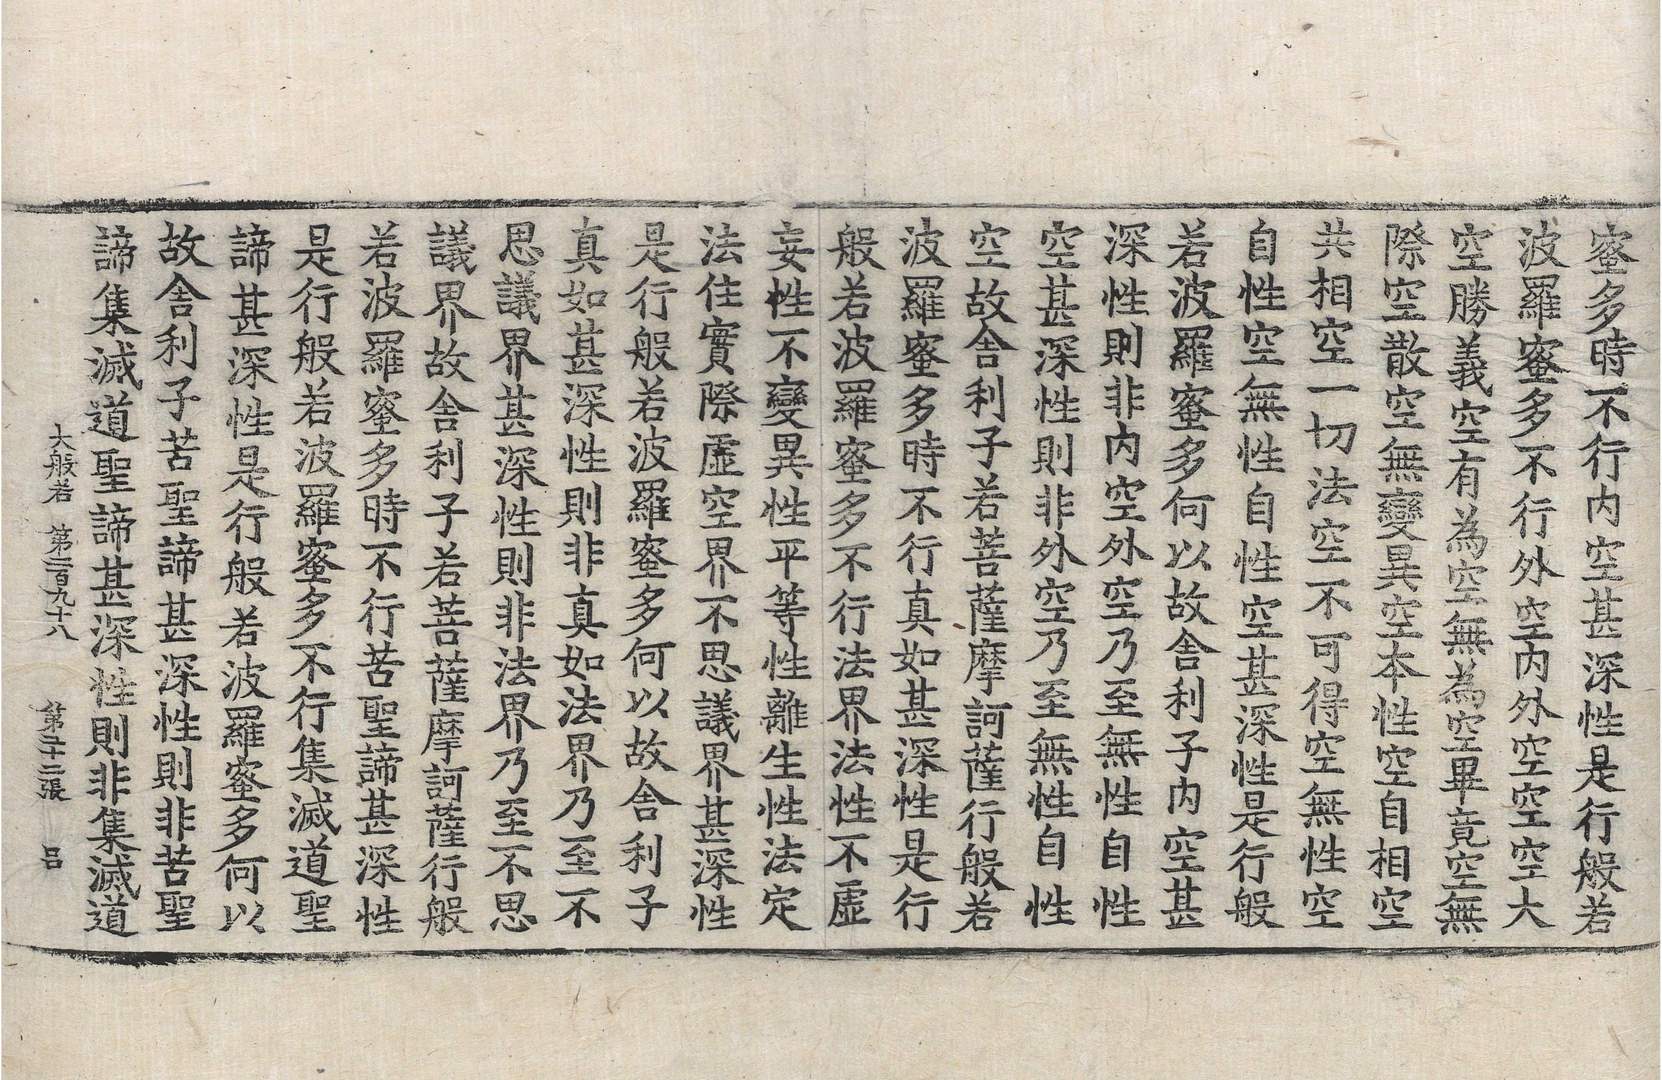 蜜多時不行内空甚深性是行般若
波羅蜜多不行外空内外空空空大
空勝義空有為空無為空畢竟空無
際空散空無變異空本性空自相空
共相空一切法空不可得空無性空
自性空無性自性空甚深性是行般
若波羅蜜多何以故舍利子内空甚
深性則非内空外空乃至無性自性
空甚深性則非外空乃至無性自性
空故舍利子若菩薩摩訶薩行般若
波羅蜜多時不行真如甚深性是行
般若波羅蜜多不行法界法性不虛
妄性不變異性平等性離生性法定
法住實際虛空界不思議界甚深性
是行般若波羅蜜多何以故舍利子
真如甚深性則非真如法界乃至不
思議界甚深性則非法界乃至不思
議界故舍利子若菩薩摩訶薩行般
若波羅蜜多時不行苦聖諦甚深性
是行般若波羅蜜多不行集滅道聖
諦甚深性是行般若波羅蜜多何以
故舍利子苦聖諦甚深性則非苦聖
諦集滅道聖諦甚深性則非集滅道
大般若 第二百九十八 第二十二張 呂